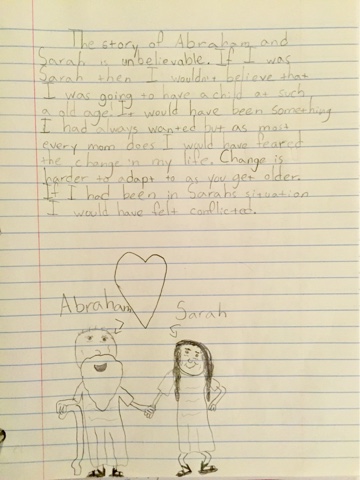 The story of Abraham and
Sarah is unbelievable. If I was
Sarah then I wouldn't believe that
I was going to have a child at such
a old age. It would have been something
I had always wanted but as most
every mom does I would have feared
the change in my life. Change is
harder to adapt to as you get older.
If I had been in Sarahs situation
I would have felt conflicted.
Abraham
Sarah